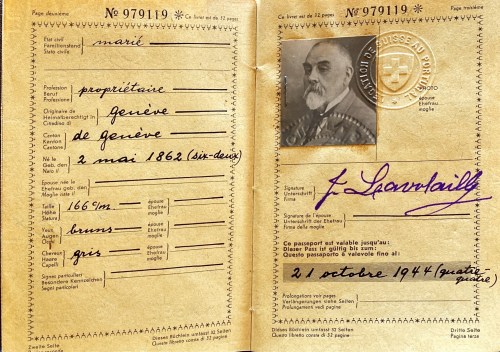 Page deuxième № 979119 ※ Ce livret est de 32 pages
Etat civil
Familienstand
Stato civile
marié
Profession
Beruf
Professione
propriétaire
Originaire de
Heimatberechtigt in
Cittadino di
Genève
Canton
Kanton
Cantone
de Genève
Né le
Geb. den
Nato il
2 mai 1862 (six-deux)
Epouse née le
Ehefrau geb. den
Moglie nata il
Taille
Höhe
Statura
166 c/m
épouse
Ehefrau
moglie
Yeux
Augen
Occhi
bruns
épouse
Ehefrau
moglie
Cheveux
Haare
Capelli
gris
épouse
Ehefrau
moglie
Signes particuliers
Besondere Kennzeichen
Segni particolari
Zweite Seite
Dieses Büchlein umfasst 32 Seiten
Questo libretto consta di 32 pagine
Ce livret est de 32 pages № 979119 ※ Page troisième
DE SUISSE AU PORTUGAL
PHOTO
épouse
Ehefrau
moglie
Signature
Unterschrift
Firma
Signature de l'épouse
Unterschrift der Ehefrau
Firma della moglie
Ce passeport est valable jusqu'au:
Dieser Pass ist gültig bis zum:
Questo passaporto è valevole fino al:
21 octobre 1944 (quatre-
quatre)
Prolongations voir pages
Verlängerungen siehe Seiten
Prolungamenti vedi pagine
Dieses Büchlein umfasst 32 Seiten
Questo libretto consta di 32 pagine
Dritte Seite
Pagina terza